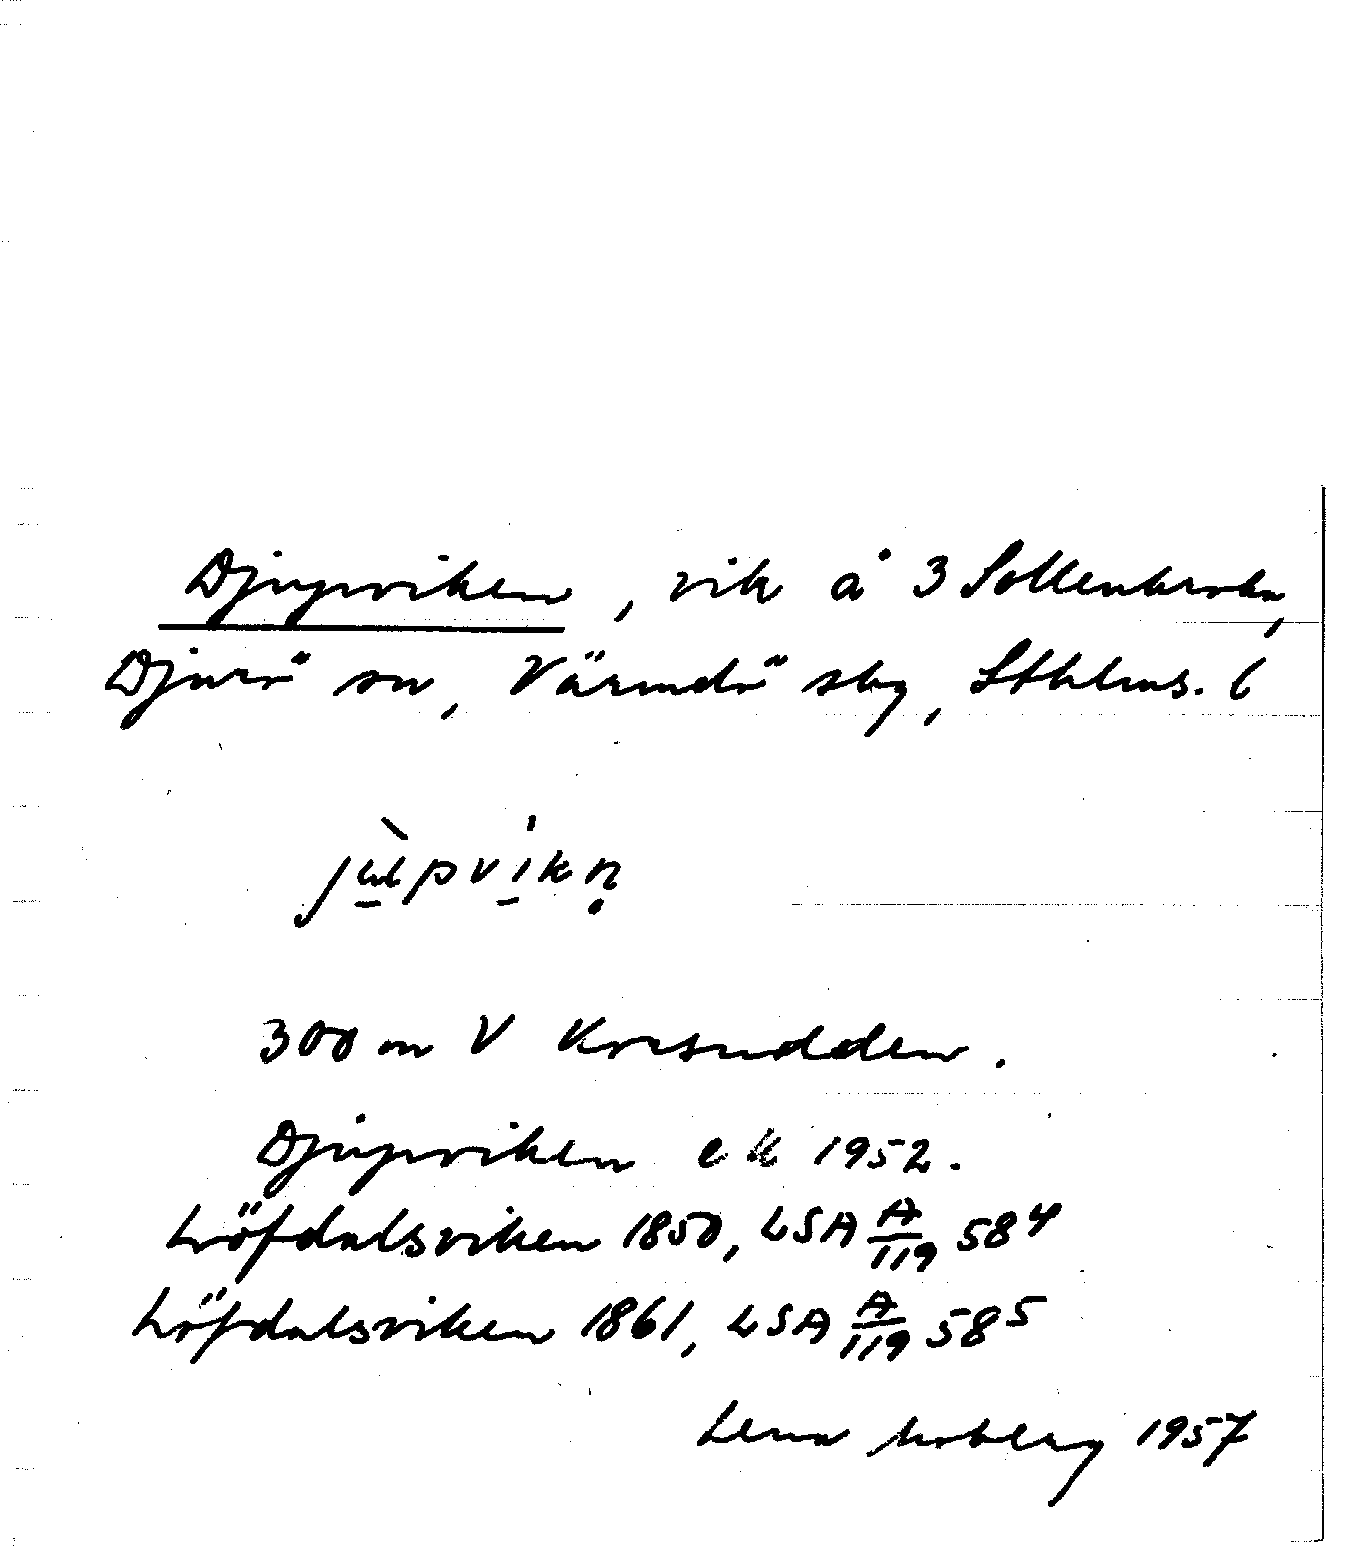 Djupviken, vik å 3 Sollenkroka,
Djurö sn, Värmdö sbg, Sthlms. l
jùpvíkṇ
300 m V Korsudden.
Djupviken ek 1952.
Löfdalsviken 1850, LSA A/119 58⁴
Löfdalsviken 1861, LSA A/119 58⁵
Lena Moberg 1957